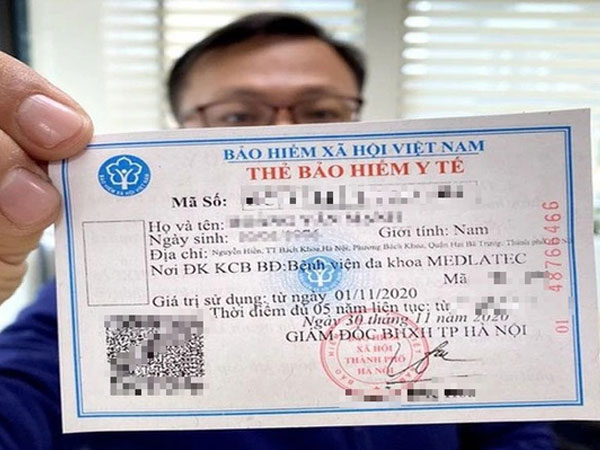 BẢO HIỂM XÃ HỘI VIỆT NAM
THẺ BẢO HIỂM Y TẾ
BẢO HIỂM XÃ HỘI VIỆT NAM
Mã Số:
Họ và tên:
Ngày sinh: Giới tính: Nam
Địa chỉ: Nguyễn Hiền, TT Bách Khoa, Hà Nội, Phường Bách Khoa, Quận Hai Bà Trưng, Thành phố
Nơi ĐK KCB BĐ: Bệnh viện đa khoa MEDLATEC
Mã
Giá trị sử dụng: từ ngày 01/11/2020
Thời điểm đủ 05 năm liên tục: từ
Ngày 30 tháng 11 năm 2020
GIÁM ĐỐC BHXH TP HÀ NỘI
BẢO HIỂM
XÃ HỘI
THÀNH PHỐ
HÀ NỘI
01 48766466